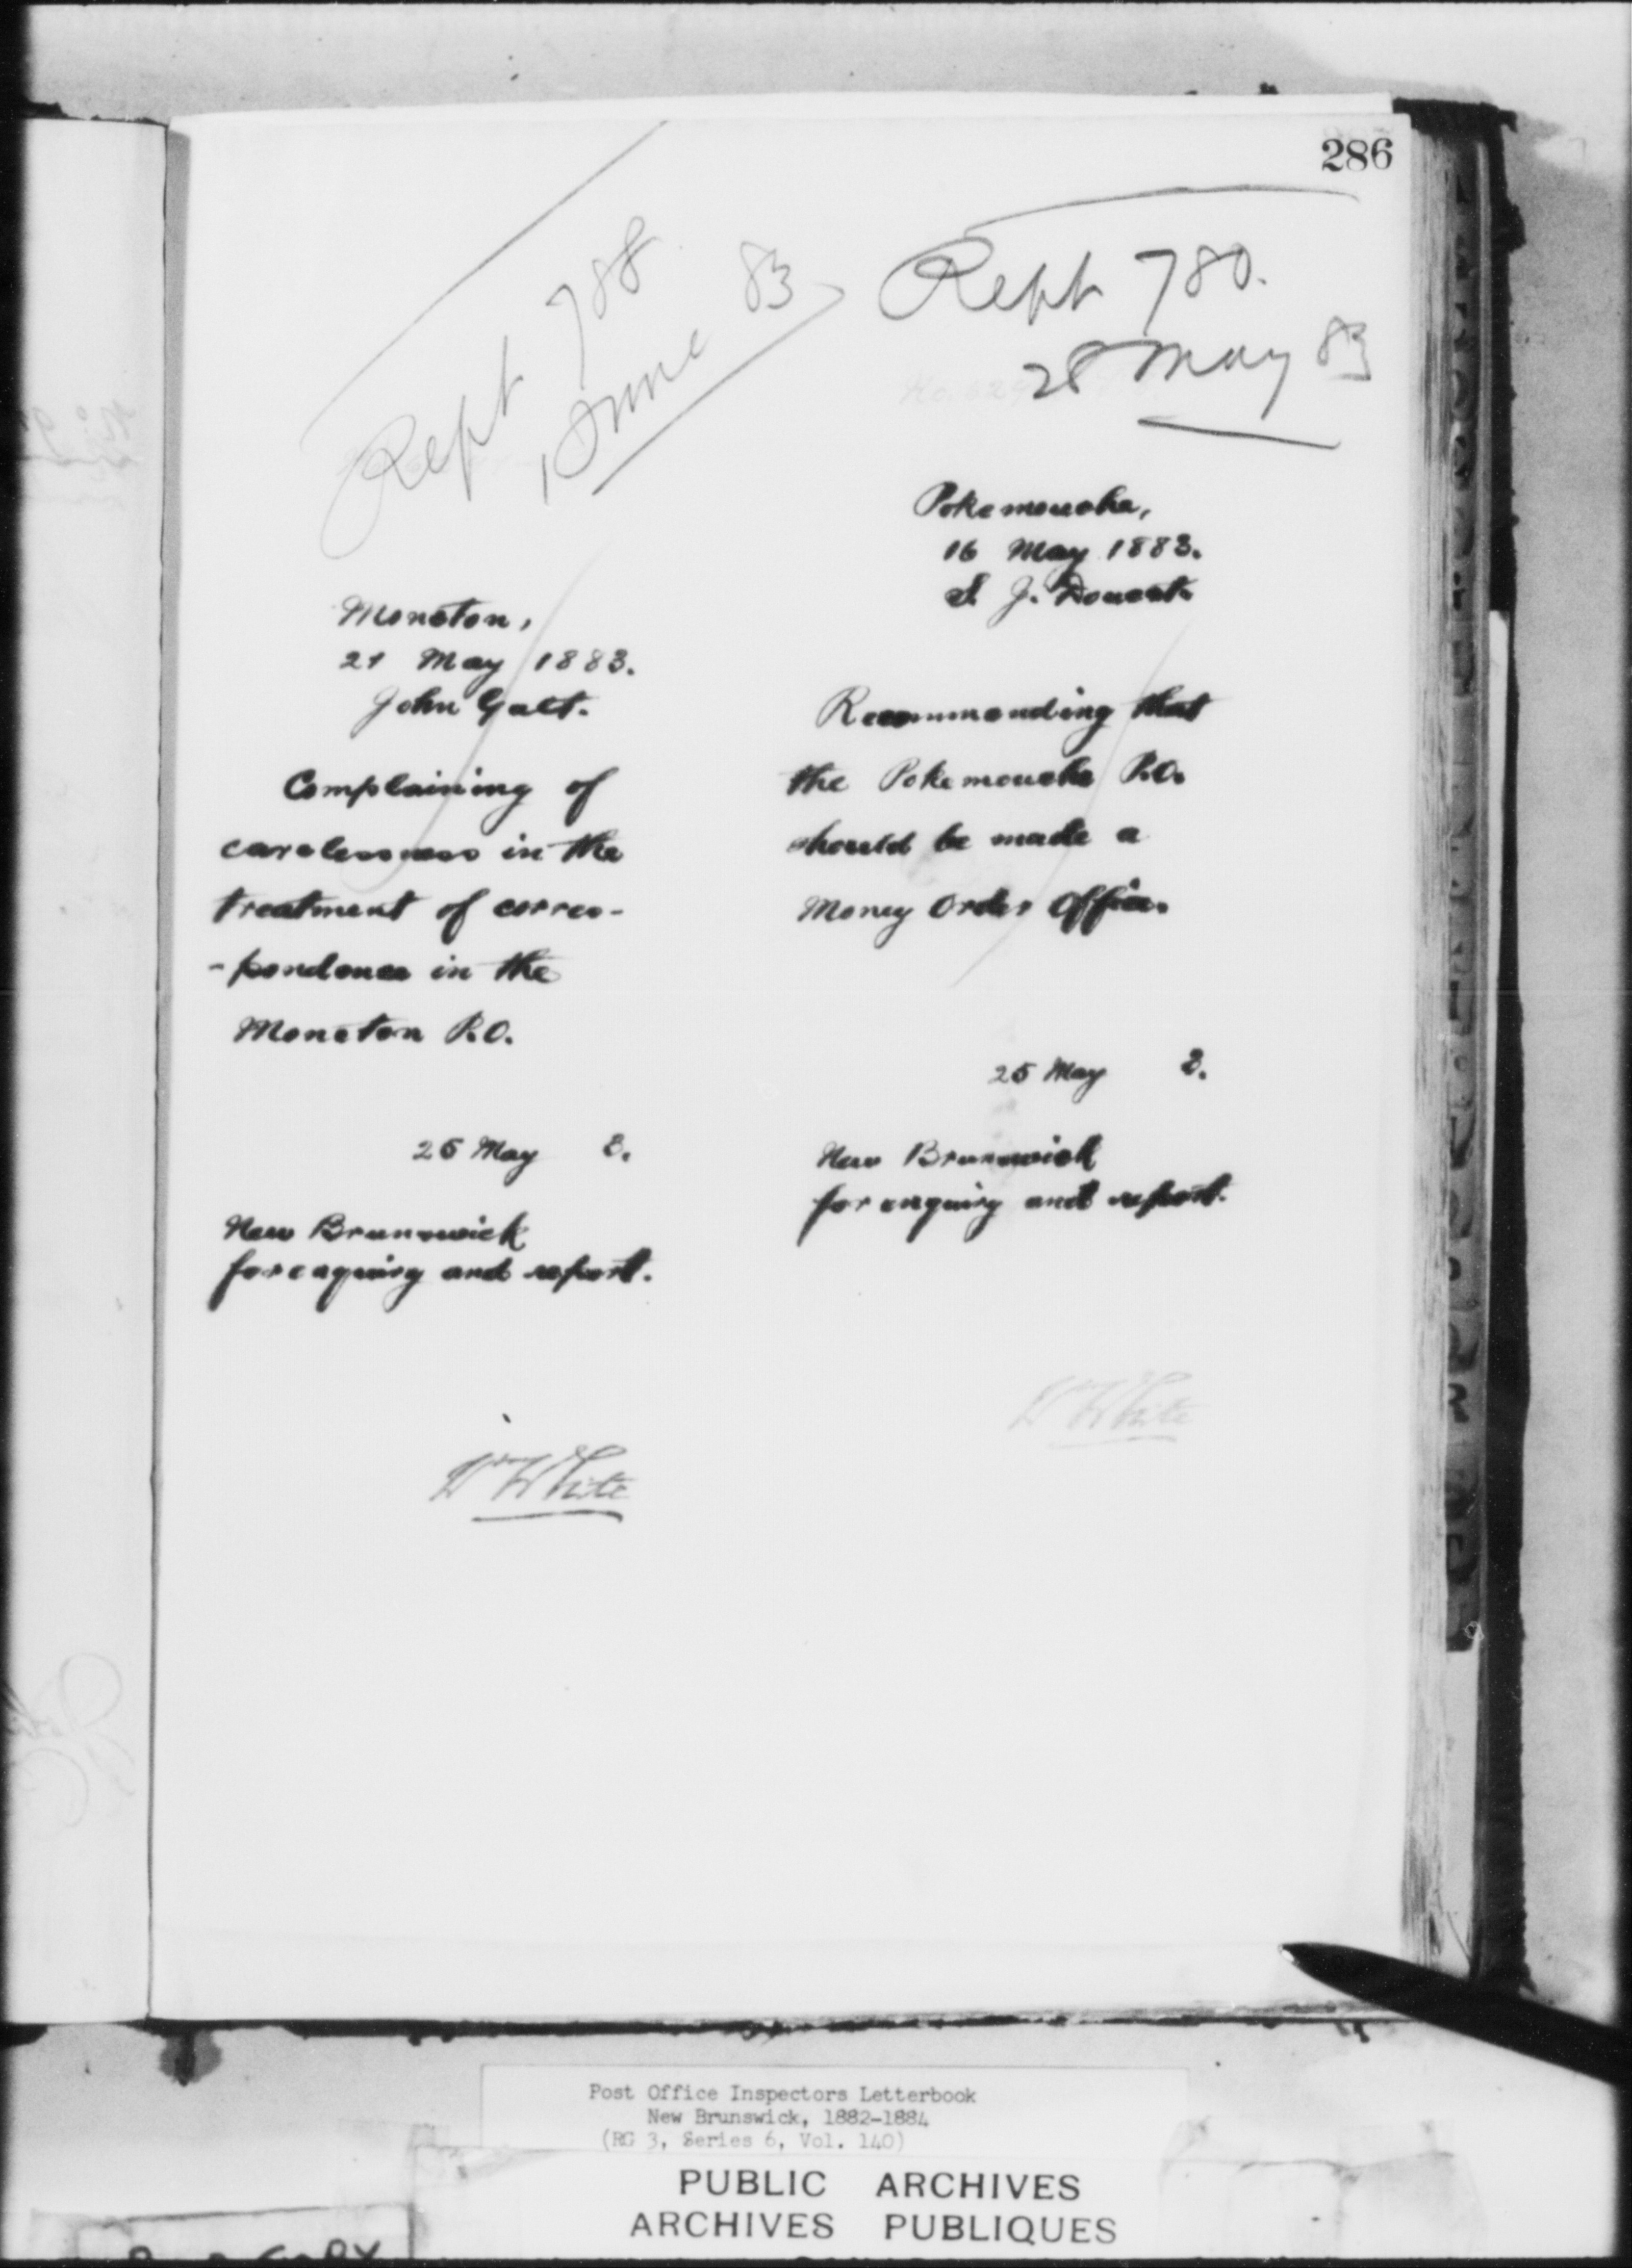 286
Rept 788
1 June 83
Moncton,
21 May 1883.
John Galt.
Complaining of
carelessness in the
treatment of corres-
-pondence in the
Moncton P.O.
25 May 3.
New Brunswick
for enquiry and report.
Wm White
Rept 780.
28 May 83
Pokemouche,
16 May 1883.
S. J. Doucet
Recommending that
the Pokemouche P.O.
should be made a
Money Order Office.
25 May 3.
New Brunswick
for enquiry and report.
Wm White
Post Office Inspectors Letterbook
New Brunswick, 1882-1884
(RG 3, Series 6, Vol. 140)
PUBLIC ARCHIVES
ARCHIVES PUBLIQUES